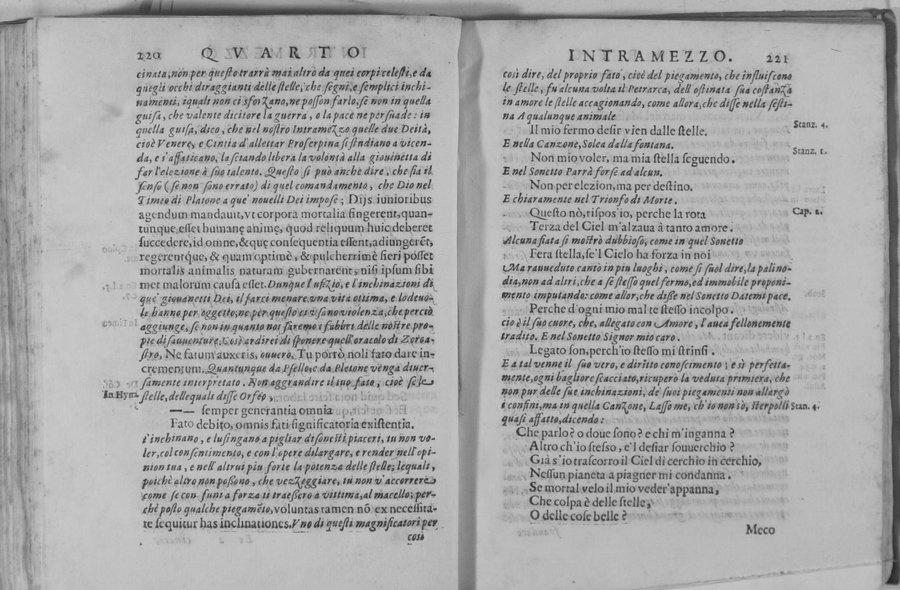 220 QVARTO
cinata, non per questo trarrà mai altro da quei corpi celesti, e da
quegli occhi diraggianti delle stelle, che segni, e semplici inchi-
namenti, iquali non ci sforzano, ne posson farlo, se non in quella
guisa, che valente dicitore la guerra, o la pace ne persuade: in
quella guisa, dico, che nel nostro Intramezzo quelle due Deità,
cioè Venere, e Cintia d'allettar Proserpina si studiano a vicen-
da, e s'affaticano, lasciando libera la volontà alla giouinetta di
far l'elezione à suo talento. Questo si può anche dire, che sia il
senso (se non sono errato) di quel comandamento, che Dio nel
Timeo di Platone a que' nouelli Dei impose; Dijs iunioribus
agendum mandauit, vt corpora mortalia fingerent, quan-
tunque esset humanę animę, quod reliquum huic deberet
succedere, id omne, & quę consequentia essent, adiungerēt,
regerentque, & quam optimè, & pulcherrimè fieri posset
mortalis animalis naturam gubernarent, nisi ipsum sibi
met malorum causa esset. Dunque l'ufizio, e l'inchinazioni di
que' giouanetti Dei, il farci menare vna vita ottima, e lodeuo-
le hanno per oggetto, ne per questo ci vsano violenza, che perciò
aggiunge, se non in quanto noi saremo i fabbri delle nostre pro-
pie disauuenture. Così ardirei di sporre quell'oracolo di Zoroa-
stro, Ne fatum auxeris, ouuerò. Tu portò noli fato dare in-
crementum. Quantunque da Psello, e da Pletone venga diuer-
samente interpretato. Non aggrandire il tuo fato, cioè se le
In Hym.
stelle, delle quali disse Orfeo,
—— semper generantia omnia
Fato debito, omnis fati significatoria existentia.
t'inchinano, e lusingano a pigliar disonesti piaceri, tu non vo-
ler, col consentimento, e con l'opere dilargare, e render nell'opi-
nion tua, e nell'altrui piu forte la potenza delle stelle; lequali,
poichè altro non possono, che vezzeggiare, tu non v'accorrere
come se con funi a forza ti traessero a vittima, al macello; per-
ché posto qualche piegamēto, voluntas tamen nō ex necessita-
te sequitur has inclinationes. Vno di questi magnificatori per
così
INTRAMEZZO. 221
così dire, del proprio fato, cioè del piegamento, che influiscono
le stelle, fu alcuna volta il Petrarca, dell'ostinata sua costanza
in amore le stelle accagionando, come allora, che disse nella sesti-
na A qualunque animale
Il mio fermo desir vien dalle stelle.
Stanz. 4.
E nella Canzone, Solea dalla fontana.
Non mio voler, ma mia stella seguendo.
Stanz. 1.
E nel Sonetto Parrà forse ad alcun.
Non per elezion, ma per destino.
E chiaramente nel Trionfo di Morte.
Questo nò, rispos'io, perche la rota
Cap. 2.
Terza del Ciel m'alzaua à tanto amore.
Alcuna fiata si mostrò dubbioso, come in quel Sonetto
Fera stella, se'l Cielo ha forza in noi
Ma rauueduto cantò in piu luoghi, come si suol dire, la palino-
dia, non ad altri, che a se stesso quel fermo, ed immobile proponi-
mento imputando: come allor, che disse nel Sonetto Datemi pace.
Perche d'ogni mio mal te stesso incolpo.
cio è il suo cuore, che, allegato con Amore, l'auea fellonemente
tradito. E nel Sonetto Signor mio caro.
Legato son, perch'io stesso mi strinsi.
E a tal venne il suo vero, e diritto conoscimento; e sì perfetta-
mente, ogni bagliore scacciato, ricuperò la veduta primiera, che
non pur delle sue inchinazioni, de' suoi piegamenti non allargò
i confini, ma in quella Canzone, Lasso me, ch'io non sò, sterpolli
Stan. 4.
quasi affatto, dicendo:
Che parlo? o doue sono? e chi m'inganna?
Altro ch'io stesso, e'l desiar souuerchio?
Già s'io trascorro il Ciel di cerchio in cerchio,
Nessun pianeta a piagner mi condanna.
Se mortal velo il mio veder'appanna,
Che colpa è delle stelle,
O delle cose belle?
Meco